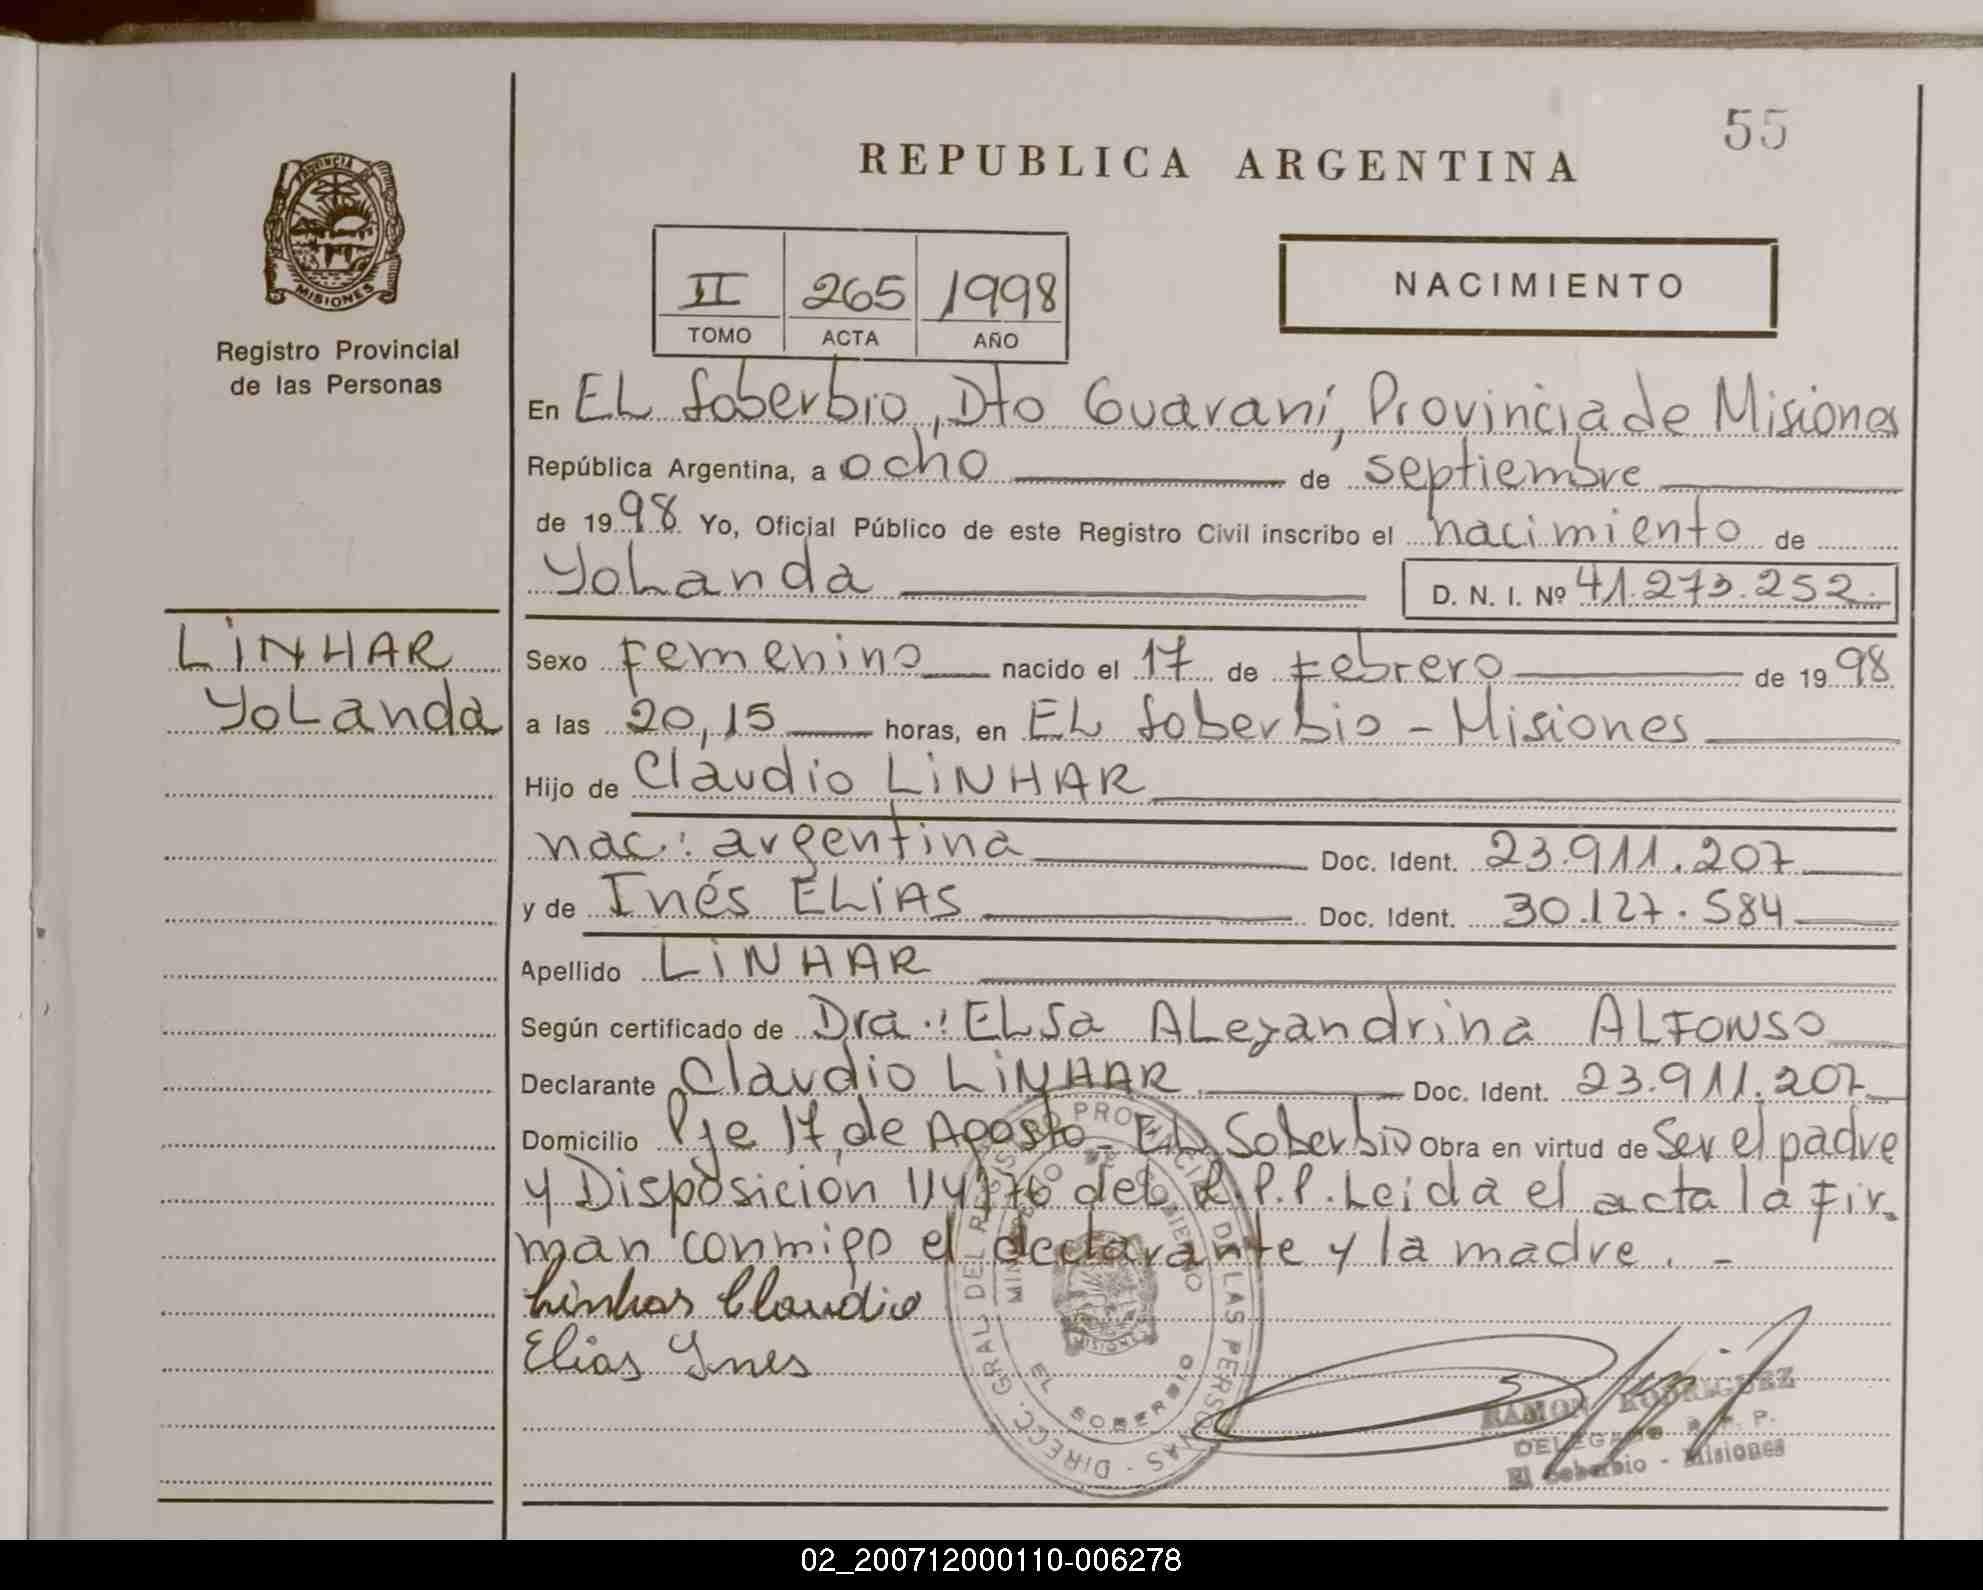 55
REPUBLICA ARGENTINA
PROVINCIA DE
MISIONES
Registro Provincial
de las Personas
II 265 1998
TOMO ACTA AÑO
NACIMIENTO
En EL Soberbio, Dto Guaraní, Provincia de Misiones
República Argentina, a ocho de septiembre
de 1998 Yo, Oficial Público de este Registro Civil inscribo el nacimiento de
Yolanda D. N. I. Nº 41.273.252.
LINHAR
Yolanda
Sexo Femenino nacido el 17 de Febrero de 1998
a las 20,15 horas, en EL Soberbio - Misiones
Hijo de Claudio LINHAR
nac: argentina Doc. Ident. 23.911.207
y de Inés ELIAS Doc. Ident. 30.127.584
Apellido LINHAR
Según certificado de Dra.: ELSa ALejandrina ALFONSO
Declarante Claudio LINHAR Doc. Ident. 23.911.207
Domicilio Pje 17 de Agosto - EL Soberbio Obra en virtud de Ser el padre
y Disposición 114/76 del R.P.P. Leida el acta la fir-
man conmigo el declarante y la madre. -
Linhar Claudio
Elias Ynes
DIRECC. GRAL DEL REGISTRO PROVINCIAL DE LAS PERSONAS
MINISTERIO DE GOBIERNO
MISIONES
EL SOBERBIO
RAMON RODRIGUEZ
DELEGADO R. P. P.
El Soberbio - Misiones
02_200712000110-006278